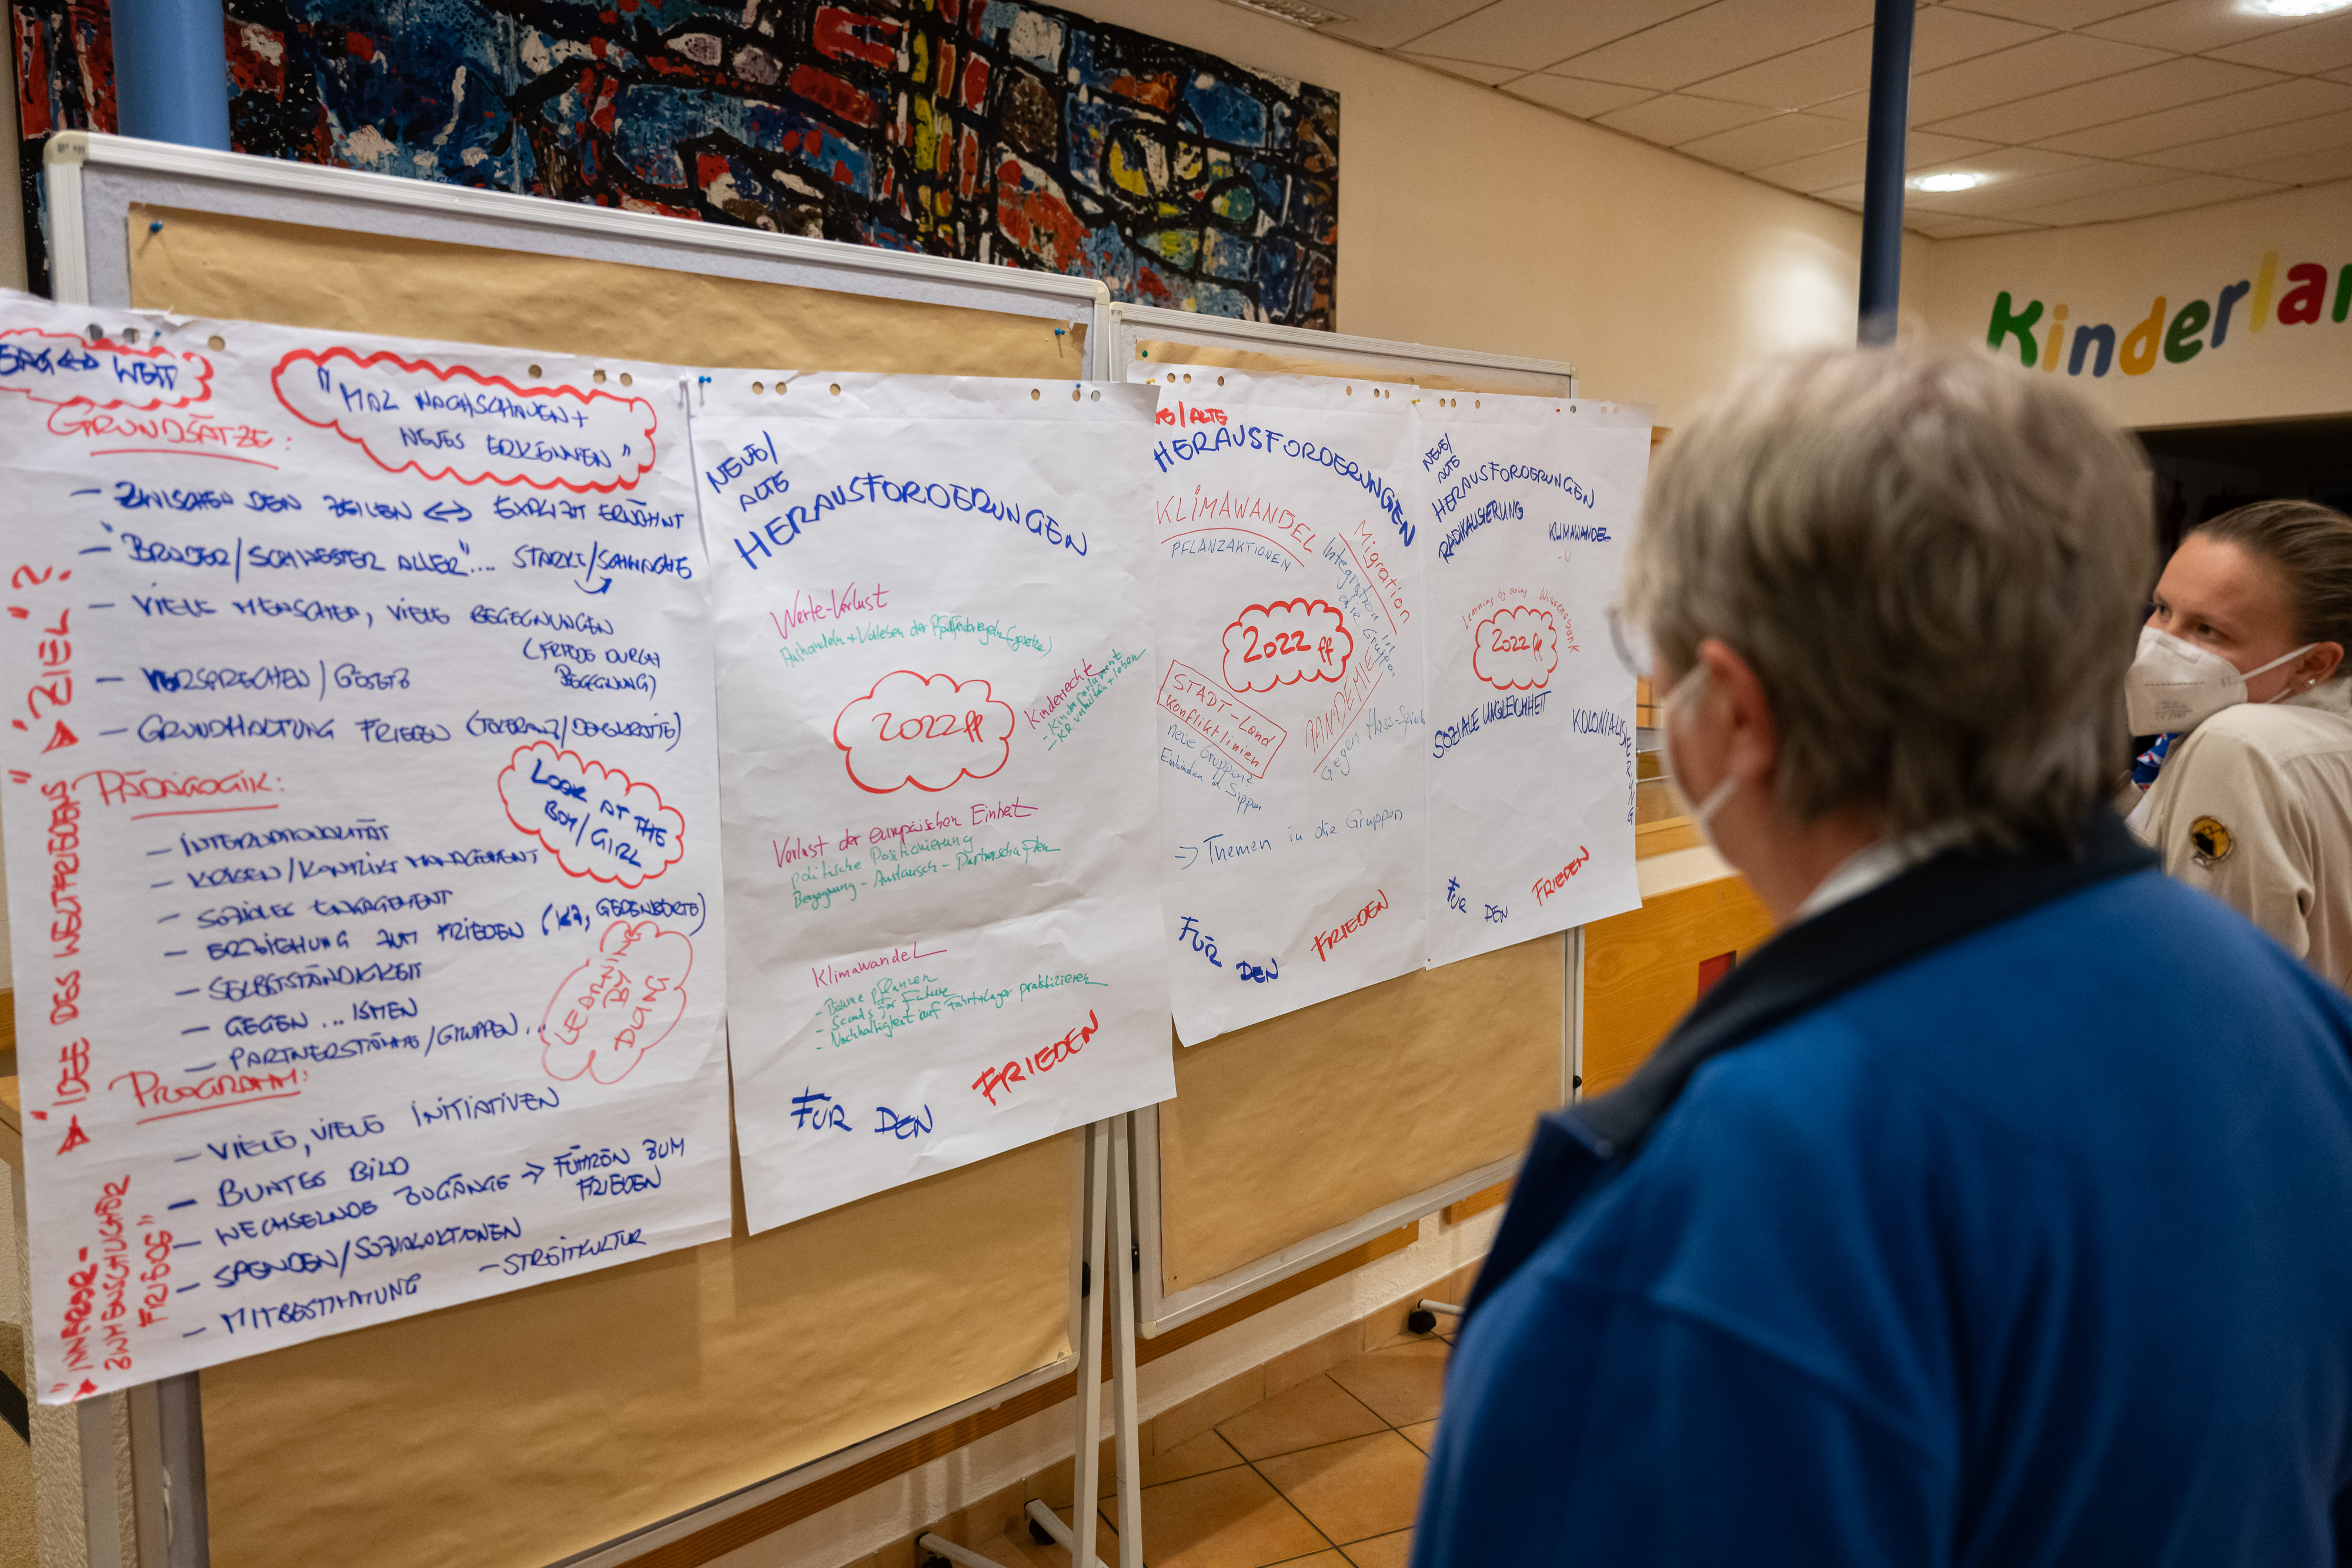 WELT
"MAL NACHSCHAUEN +
NEUES ERKENNEN"
GRUNDSÄTZE:
– ZWISCHEN DEN ZEILEN ↔ EXPLIZIT ERWÄHNT
– "BRUDER/SCHWESTER ALLER".... STARKE/SCHWACHE
– VIELE MENSCHEN, VIELE BEGEGNUNGEN
(FRIEDE DURCH
BEGEGNUNG)
– VERSPRECHEN/GESETZ
– GRUNDHALTUNG FRIEDEN (TOLERANZ/DEMOKRATIE)
PÄDAGOGIK:
LOOK AT THE
BOY/GIRL
– INTERNATIONALITÄT
– KRISEN/KONFLIKT MANAGEMENT
– SOZIALES ENGAGEMENT
– ERZIEHUNG ZUM FRIEDEN (KZ, GEDENKORTE)
– SELBSTSTÄNDIGKEIT
– GEGEN ... ISMEN
– PARTNERSTÄMME/GRUPPEN...
LEARNING
BY
DOING
PROGRAMM:
– VIELE, VIELE INITIATIVEN
– BUNTES BILD
– WECHSELNDE ZUGÄNGE → FÜHREN ZUM
FRIEDEN
– SPENDEN/SOZIALAKTIONEN
– MITBESTIMMUNG – STREITKULTUR
"IDEE DES WELTFRIEDENS"
"ZIEL"?
"INNER-
ZWMENSCHLICHER
FRIEDE"
NEUE/
ALTE
HERAUSFORDERUNGEN
Werte-Verlust
Aushandeln + Vorlesen der Pfadfinderregeln (gesetze)
Kinderrechte
- Kinderparlament
- KR vorhalten + leben
2022 ff
Verlust der europäischen Einheit
politische Positionierung
Begegnung - Austausch - Partnerschaften
Klimawandel
- Bäume pflanzen
- Scouts for Future
- Nachhaltigkeit auf Fahrt+Lager praktizieren
FÜR DEN FRIEDEN
/ALTE
HERAUSFORDERUNGEN
KLIMAWANDEL
PFLANZAKTIONEN
Migration
Integration in
die Gruppen
2022 ff
STADT-Land
Konfliktlinien
neue Gruppen?
Einbinden d Sippen
PANDEMIE
Gegen
→ Themen in die Gruppen
FÜR DEN FRIEDEN
NEUE/
ALTE
HERAUSFORDERUNGEN
RADIKALISIERUNG
KLIMAWANDEL
Learning by doing Wissensbank
2022 ff
SOZIALE UNGLEICHHEIT
KOLONIALISIERUNG
FÜR DEN FRIEDEN
Kinderlan